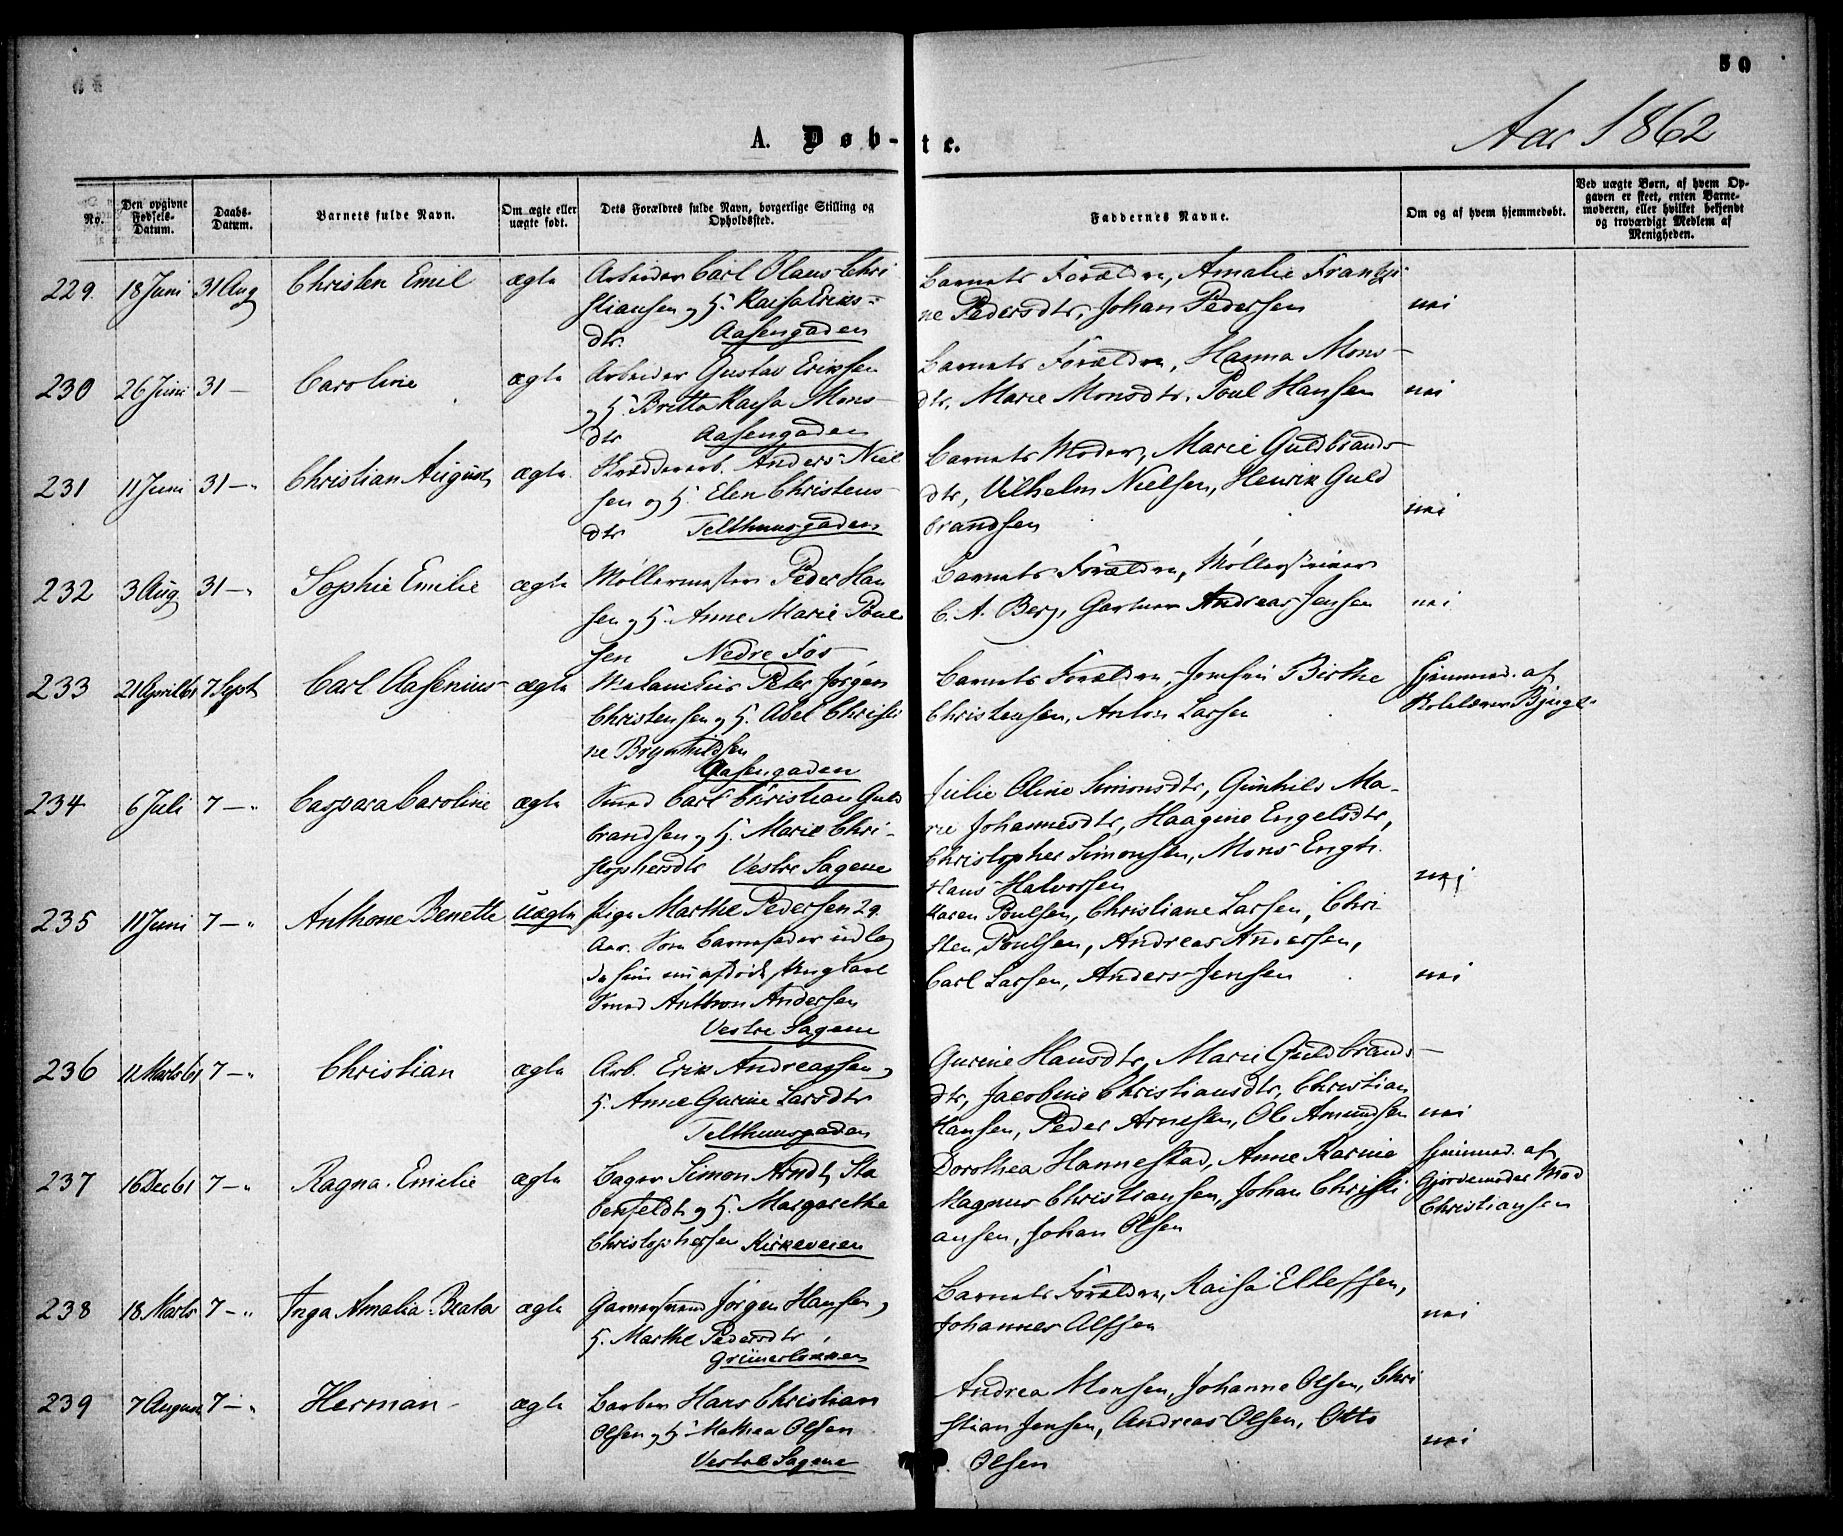 50
Aar 1862
A. Døb-te.
No.
Den opgivne Fødsels-Datum.
Daabs-Datum.
Barnets fulde Navn.
Om ægte eller uægte født.
Dets Forældres fulde Navn, borgerlige Stilling og Opholdssted.
Faddernes Navne.
Om og af hvem hjemmedøbt.
Ved uægte Børn, af hvem Opgaven er skeet, enten Barnemoderen, eller hvilket bekjendt og troværdigt Medlem af Menigheden.
229. 18 Juni 31 Aug Christen Emil ægte Arbeider Carl Olaus Chri Barnets Forældre, Amalie Frantzi-
stiansen og H. Kaisa Eriks- ne Pedersdtr, Johan Pedersen nei
dtr. Aasengaden
230 26 Juni 31 - Caroline ægte Arbeider Gustav Eriksen Barnets Forældre, Hanna Mons-
og H. Britta Kaisa Mons- dtr, Marie Monsdtr, Poul Hansen nei
dtr Aasengaden
231 11 Juni 31 - " Christian August ægte Skrædderarb. Anders Niel Barnets Moder, Marie Guldbrands-
sen og H. Elen Christens- dtr, Vilhelm Nielsen, Henrik Guld nei
dtr Telthuusgaden brandsen
232 3 Aug. 31 - " Sophie Emilie ægte Møllermester Peder Han Barnets Forældre,
sen og H. Anne Marie Poul C. A. Berg, Gartner Andreas Jensen nei
sen Nedre Fos
233 21 April 61 7 Sept Carl Aasenius ægte Peter Jørgen Barnets Forældre, Birthe Hjemmed. af
Christensen og H. Abel Christi Christensen, Anton Larsen
ne Brynhildsen
Aasengaden
234 6 Juli 7 - " Caspara Caroline ægte Smed Carl Christian Guld Julie Oline Simonsdtr, Gunhild Ma-
brandsen og H. Marie Chri- rie Johannesdtr, Haagine Engelsdtr,
stophersdtr Vestre Sagene Christopher Simonsen, Mons Engh. nei
Hans Halvorsen
235 11 Juni 7 - " Anthone Benette uægte Pige Marthe Pedersen 29 Karen Poulsen, Christiane Larsen, Chri
Aar. Som Barnefader udlag sten Poulsen, Andreas Andersen,
de hun nu afdøde Ungkarl Carl Larsen, Anders Jensen nei
Smed Anthon Andersen
Vestre Sagene
236 11 Marts 61 7 - " Christian ægte Arb. Erik Andreassen og Gurine Hansdtr, Marie Guldbrands-
H. Anne Gurine Larsdtr dtr, Jacobine Christiansdtr, Christian
Telthuusgaden Hansen, Peder Arnesen, Ole Amundsen nei
237 16 Dec 61 7 - " Ragna Emilie ægte Bager Simon Arndt Sta Dorothea Hannestad, Anne Karine Hjemmed. af
benfeldt og H. Margarethe Magnus Christiansen, Johan Christi Gjordemoder Mad
Christophersen Kirkeveien ansen, Johan Olsen Christiansen
238 18 Marts 7 - " Inga Amalia Beata ægte Garversvend Jørgen Hansen og Barnets Forældre, Kaisa Ellefsen,
H. Marthe Pedersdtr. Johannes Alfsen nei
Grünerløkken
239 7 August 7 - " Herman ægte Barber Hans Christian Andrea Monsen, Johanne Olsen, Chri
Olsen og H. Mathea Olsen stian Jensen, Andreas Olsen, Otto nei
Vestre Sagene Olsen